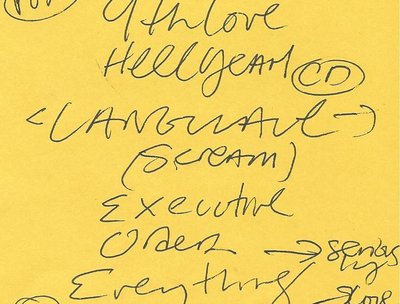 9th love
HellYeAH CD
<LANGUAGE→
(SCREAM)
Executive
Order → serious
ly
Everything